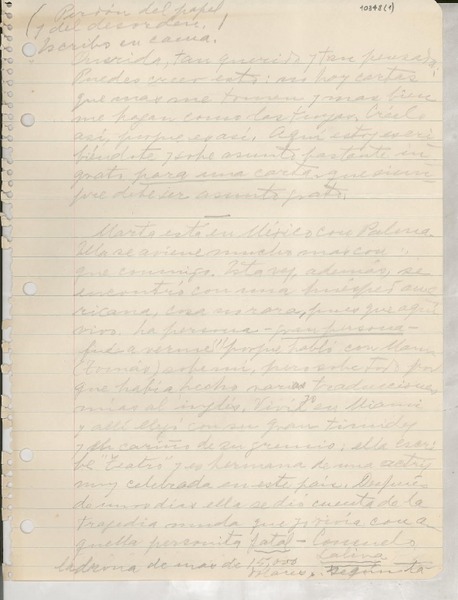 10848 (1)
(Perdón del papel
y del desorden.)
Escribo en cama.
Querida, tan querida y tan pensada:
Puedes creer esto: no hay cartas
que mas me tomen y mas bien
me hagan como las tuyas. Créelo
así, porque es así. Aquí estoy escri-
biéndote, y sobre asunto bastante in-
grato para una carta, que siem-
pre debe ser asunto grato.
Marta está en México con Palma.
Ella se aviene mucho mas con
que conmigo. Esta vez, además, se
encontró con una huesped ame-
ricana, cosa no rara, pues que aquí
vivo. La persona - gran persona -
fué a verme porque habló con Mann
(Tomás) sobre mí, pero sobre todo por
que había hecho varias traducciones
mías al inglés. Vivió en Miami
y allí eligió con su gran timidez
y un cariño de su gremio; ella escri-
be "Teatro" y es hermana de una actriz
muy celebrada en este país. Después
de unos días ella se dió cuenta de la
tragedia muda que yo vivía con a-
quella personita fatal - Consuelo
Saleva
ladrona de mas de 15,000
dólares.